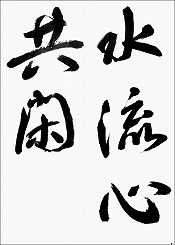 水流心
共閑